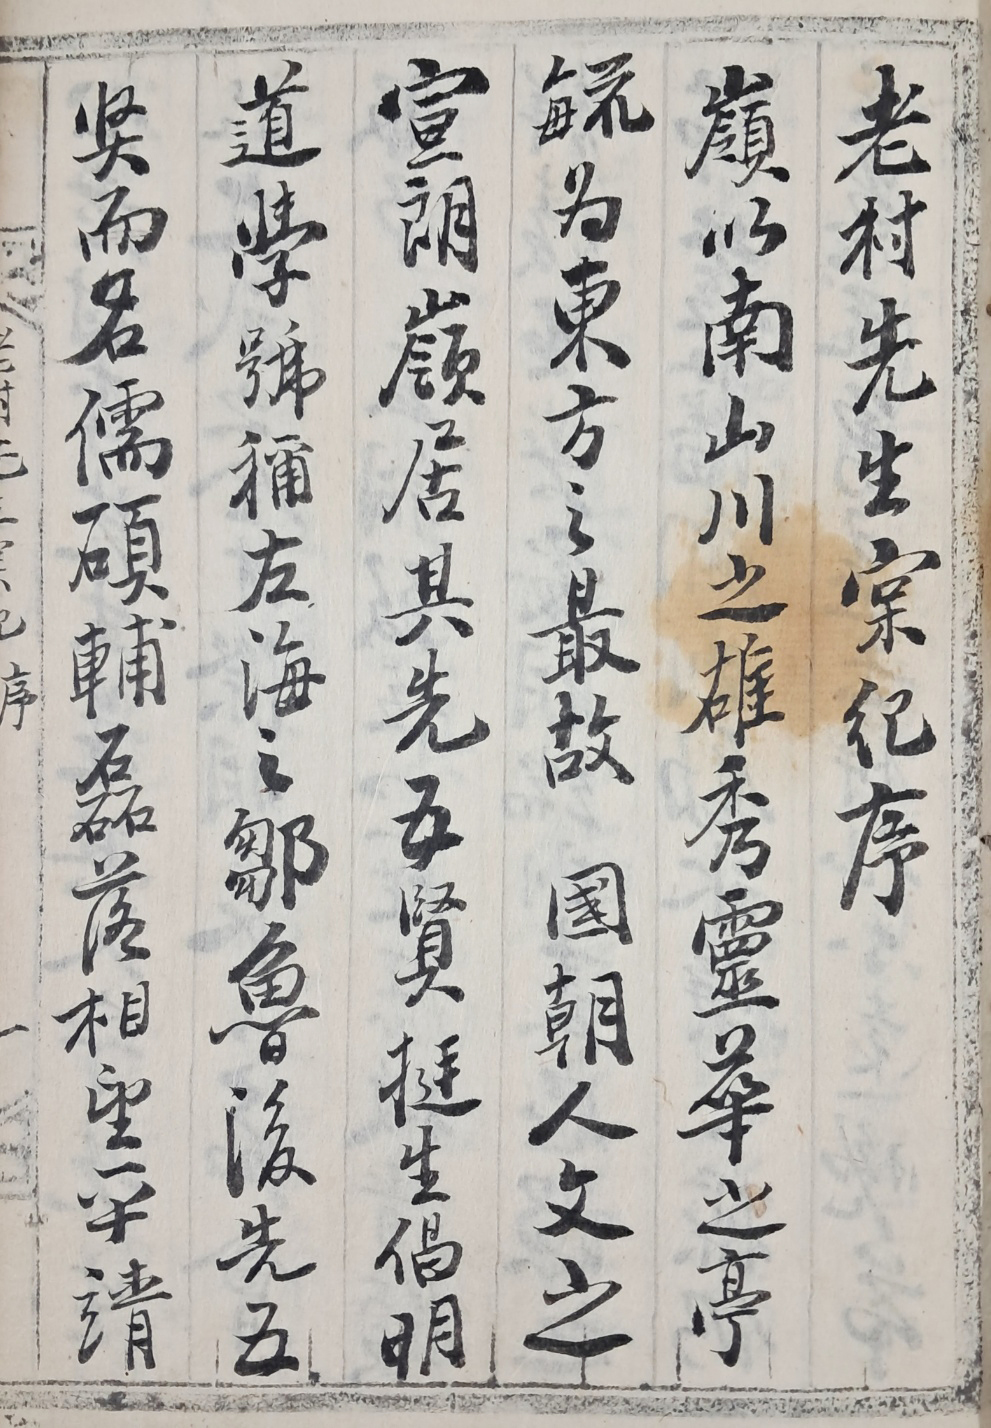 老村先生宗紀序
嶺以南山川之雄秀靈華之亭
毓为東方之最故 國朝人文之
宣朗嶺居其先五賢挺生倡明
道學號稱左海之鄒魯後先五
賢而名儒碩輔磊落相望平靖
老村先生宗紀 序 一